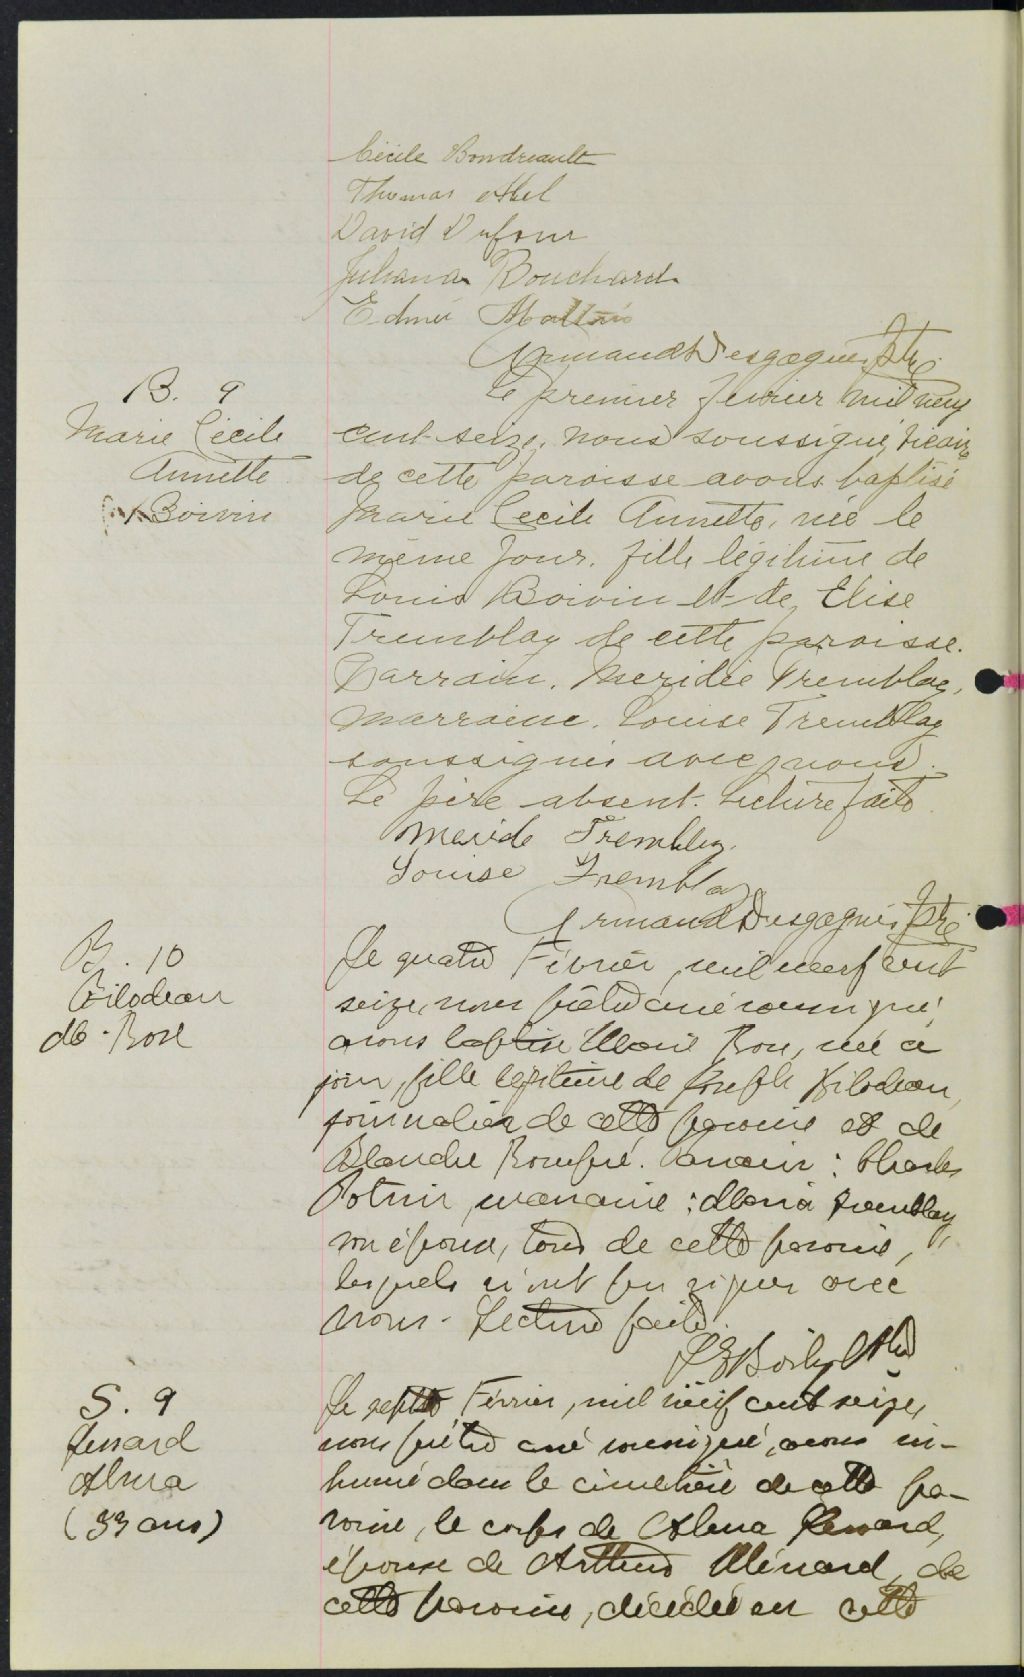 Cécile Boudreault
Thomas Abel
David Dufour
Juliana Bouchard
Edmée Maltais
Armand Desgagnés, Ptre
B. 9
Marie Cécile
Annette
Boivin
Le premier février mil neuf
cent seize, nous soussigné, vicaire
de cette paroisse avons baptisé
Marie Cécile Annette, née le
même jour, fille légitime de
Louis Boivin et de Elise
Tremblay de cette paroisse.
Parrain. Méridée Tremblay,
marraine. Louise Tremblay
soussignés avec nous.
Le père absent. Lecture faite.
Meride Trembley.
Louise Tremblay
Armand Desgagnés, Ptre
B. 10
Bilodeau
M. Rose
Le quatre Février, mil neuf cent
seize, nous prêtre curé soussigné,
avons baptisé Marie Rose, née ce
jour, fille légitime de Joseph Bilodeau,
journalier de cette paroisse et de
Blanche Rompré. Parrain : Charles
Potvin, marraine : Maria Tremblay,
son épouse, tous de cette paroisse,
lesquels n'ont pu signer avec
nous. Lecture faite.
Boily Ptre
S. 9
Renard
Alma
(33 ans)
Le sept Février, mil neuf cent seize,
nous prêtre curé soussigné, avons in-
humé dans le cimetière de cette pa-
roisse, le corps de Alma Renard,
épouse de Arthur Ménard, de
cette paroisse, décédée en cette